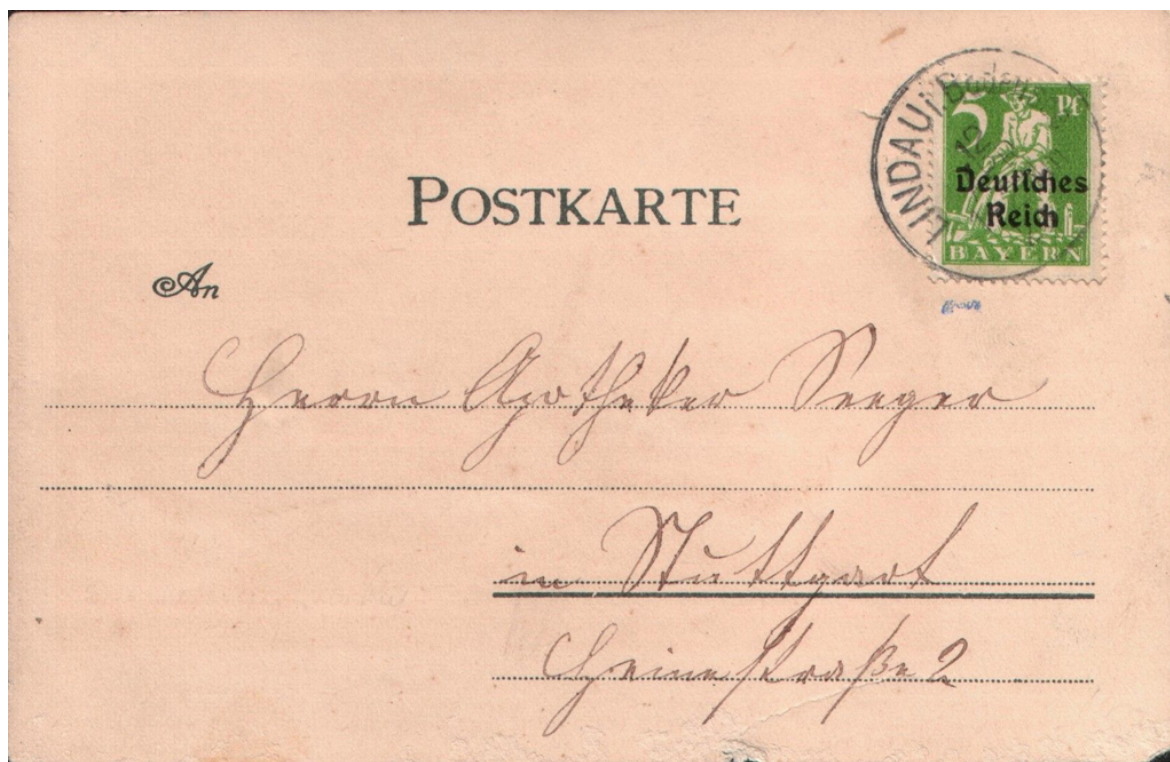 POSTKARTE
LINDAU i. Boden
5 Pf
Deutsches
Reich
BAYERN
An
Herrn Apotheker Seeger
in Stuttgart
Heinestraße 2